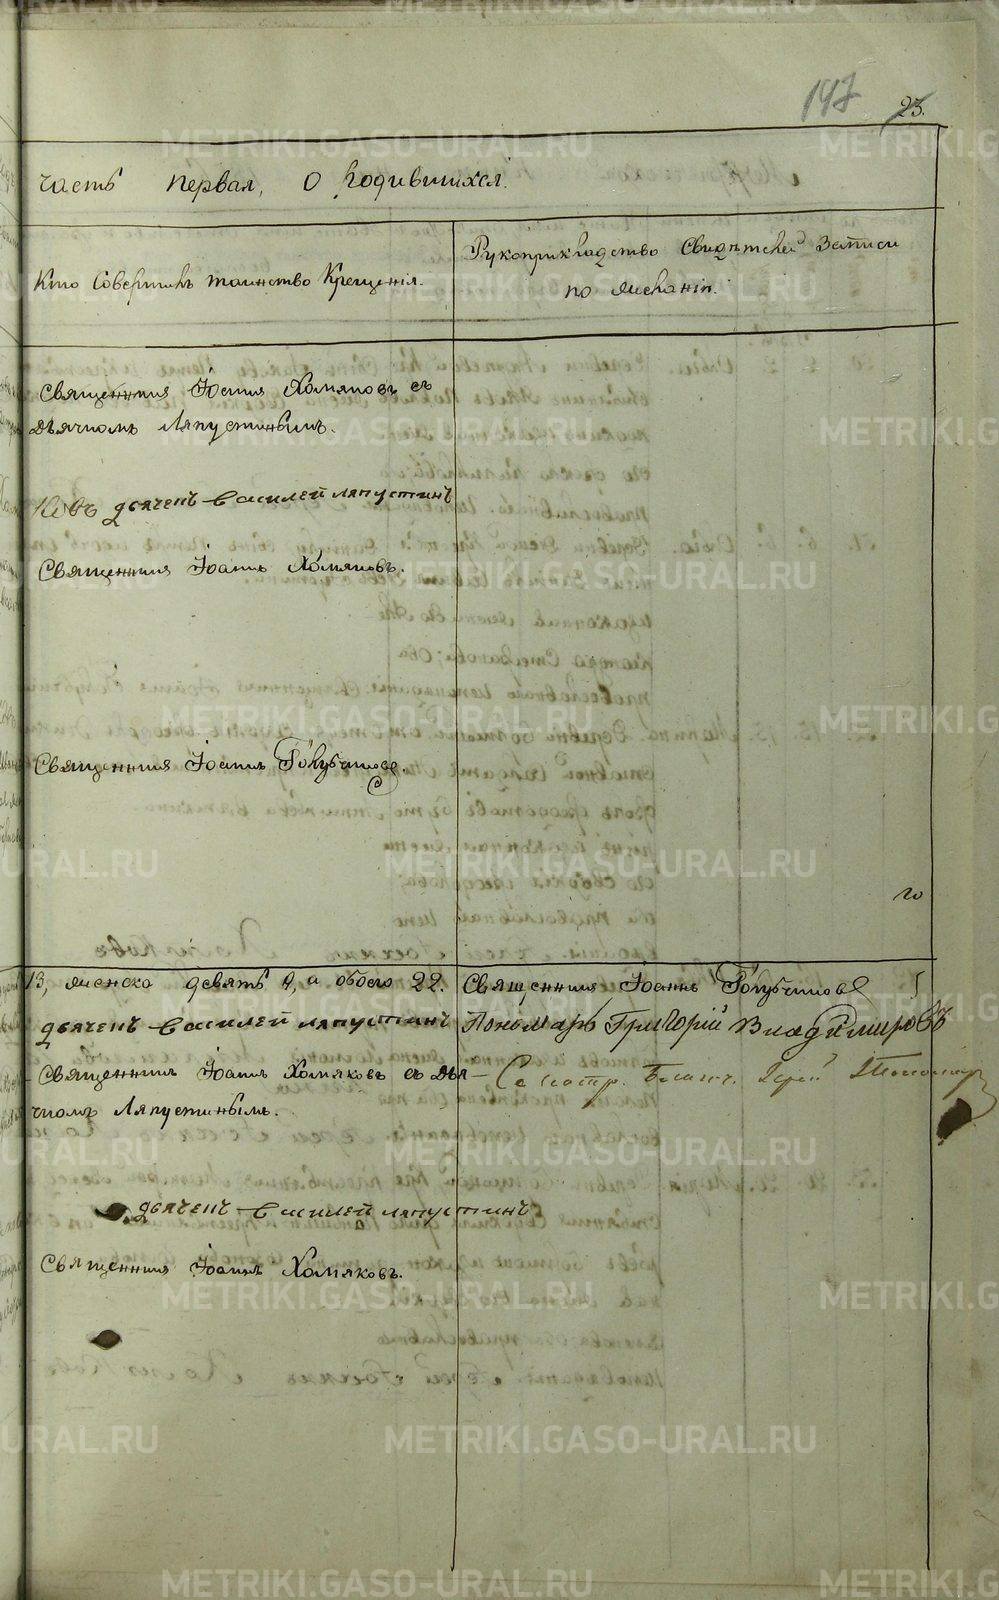 147 23.
часть первая, О родившихся.
Кто Совершилъ таинство Крещенія.
Рукоприкладство Свидѣтелей Записи
по желанію.
Священникъ Іоаннъ Хомяковъ съ
дьячкомъ Ляпустинымъ.
дьячекъ василей ляпустинъ
Священникъ Іоаннъ Хомяковъ.
Священникъ Іоаннъ Голубчиковъ.
13, женска девять 9, а обоего 22.
Священникъ Іоаннъ Голубчиковъ
дьячекъ василей ляпустинъ
Пономарь Григорій Владимировъ
Священникъ Іоаннъ Хомяковъ съ дья-
чкомъ Ляпустинымъ.
Іерей
дьячекъ василей ляпустинъ
Священникъ Іоаннъ Хомяковъ.
METRIKI.GASO-URAL.RU